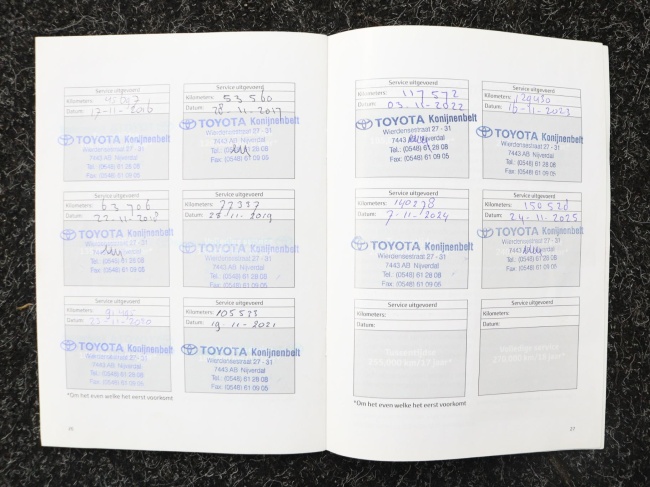 Service uitgevoerd
Kilometers:
Datum: 17-11-2016
TOYOTA Konijnenbelt
Wierdensestraat 27 - 31
7443 AB Nijverdal
Tel.: (0548) 61 28 08
Fax: (0548) 61 09 05
Service uitgevoerd
Kilometers: 53560
Datum: 28-11-2017
TOYOTA Konijnenbelt
Wierdensestraat 27 - 31
7443 AB Nijverdal
Tel.: (0548) 61 28 08
Fax: (0548) 61 09 05
Service uitgevoerd
Kilometers: 63706
Datum: 22-11-2018
TOYOTA Konijnenbelt
Wierdensestraat 27 - 31
7443 AB Nijverdal
Tel.: (0548) 61 28 08
Fax: (0548) 61 09 05
Service uitgevoerd
Kilometers: 77327
Datum: 28-11-2019
TOYOTA Konijnenbelt
Wierdensestraat 27 - 31
7443 AB Nijverdal
Tel.: (0548) 61 28 08
Fax: (0548) 61 09 05
Service uitgevoerd
Kilometers:
Datum: 23-11-2020
TOYOTA Konijnenbelt
Wierdensestraat 27 - 31
7443 AB Nijverdal
Tel.: (0548) 61 28 08
Fax: (0548) 61 09 05
Service uitgevoerd
Kilometers: 105573
Datum: 19-11-2021
TOYOTA Konijnenbelt
Wierdensestraat 27 - 31
7443 AB Nijverdal
Tel.: (0548) 61 28 08
Fax: (0548) 61 09 05
*Om het even welke het eerst voorkomt
26
Service uitgevoerd
Kilometers: 117572
Datum: 03-11-2022
TOYOTA Konijnenbelt
Wierdensestraat 27 - 31
7443 AB Nijverdal
Tel.: (0548) 61 28 08
Fax: (0548) 61 09 05
Service uitgevoerd
Kilometers: 129430
Datum: 16-11-2023
TOYOTA Konijnenbelt
Wierdensestraat 27 - 31
7443 AB Nijverdal
Tel.: (0548) 61 28 08
Fax: (0548) 61 09 05
Service uitgevoerd
Kilometers: 140278
Datum: 7-11-2024
TOYOTA Konijnenbelt
Wierdensestraat 27 - 31
7443 AB Nijverdal
Tel.: (0548) 61 28 08
Fax: (0548) 61 09 05
Service uitgevoerd
Kilometers: 150528
Datum: 24-11-2025
TOYOTA Konijnenbelt
Wierdensestraat 27 - 31
7443 AB Nijverdal
Tel.: (0548) 61 28 08
Fax: (0548) 61 09 05
Service uitgevoerd
Kilometers:
Datum:
Service uitgevoerd
Kilometers:
Datum:
*Om het even welke het eerst voorkomt
27